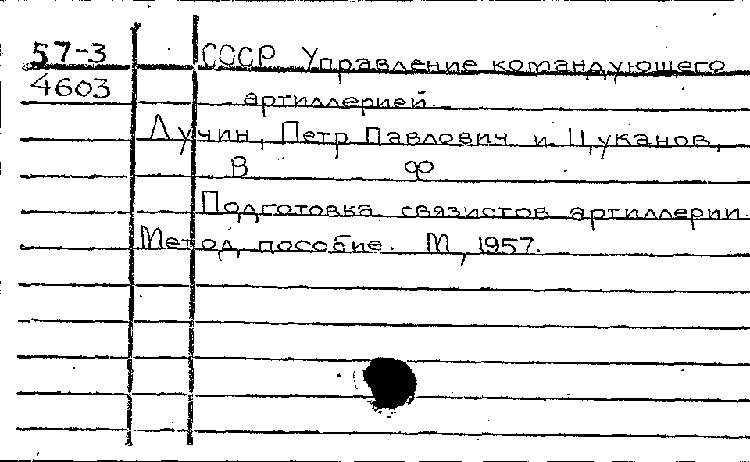 57-3 СССР Управление командующего
4603 артиллерией
Лучин, Петр Павлович и Цуканов,
В Ф
Подготовка связистов артиллерии
Метод, пособие. М, 1957.